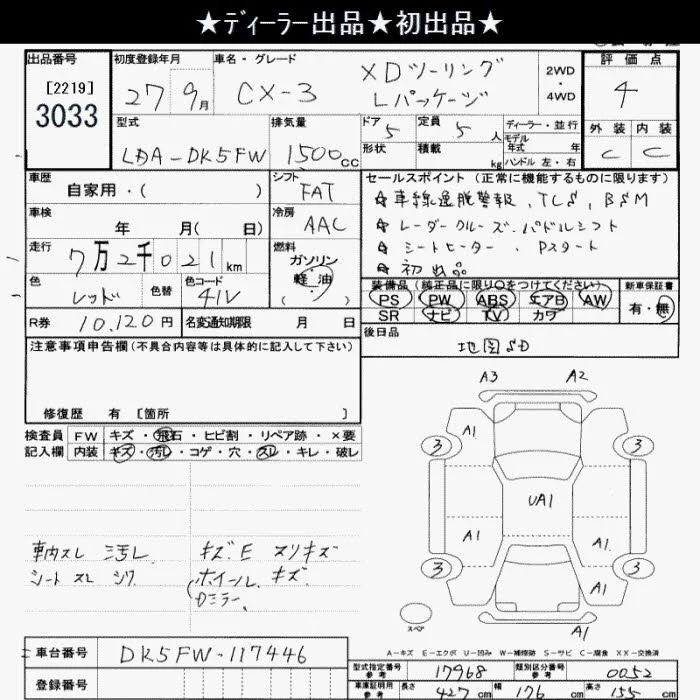 ★ディーラー出品★初出品★
出品番号 初度登録年月 車名・グレード 評価点
[2219] 3033
27 9月 CX-3 XDツーリング Lパッケージ 2WD・4WD 4
型式 排気量 ドア 5 定員 5人 ディーラー・並行 外装 内装
LDA-DK5FW 1500cc 形状 積載 kg モデル年式 年 ハンドル 左・右 C C
車歴 シフト セールスポイント (正常に機能するものに限ります)
自家用・( ) FAT ☆車線逸脱警報、TCS、BSM
車検 冷房 ☆レーダークルーズ、パドルシフト
年 月( 日) AAC ☆シートヒーター、Pスタート
走行 燃料 ☆初出品
7万2千021km ガソリン 軽油 ( )
色 色替 色コード 装備品(純正品に限り○をつけてください) 新車保証書
レッド 41V PS PW ABS エアB AW 有・無
SR ナビ TV カワ
R券 10,120円 名変通知期限 月 日 後日品
地図SD
注意事項申告欄(不具合内容等は具体的に記入して下さい)
修復歴 有 [箇所 ]
検査員 FW キズ・飛石・ヒビ割・リペア跡・×要
記入欄 内装 キズ・汚レ・コゲ・穴・スレ・キレ・破レ
A3 A2
A1
3 3
UA1
A1 A1
3 A1 3
スペア A1
車内スレ 汚レ キズE スリキズ
シート スレ シワ ホイール キズ
A-キズ E-エクボ U-凹み W-補修跡 S-サビ C-腐食 XX-交換済
車台番号 DK5FW-117446 型式指定番号 参考 17968 類別区分番号 参考 0052
登録番号 車庫証明用 参考 長さ 427cm 幅 176cm 高さ 155cm